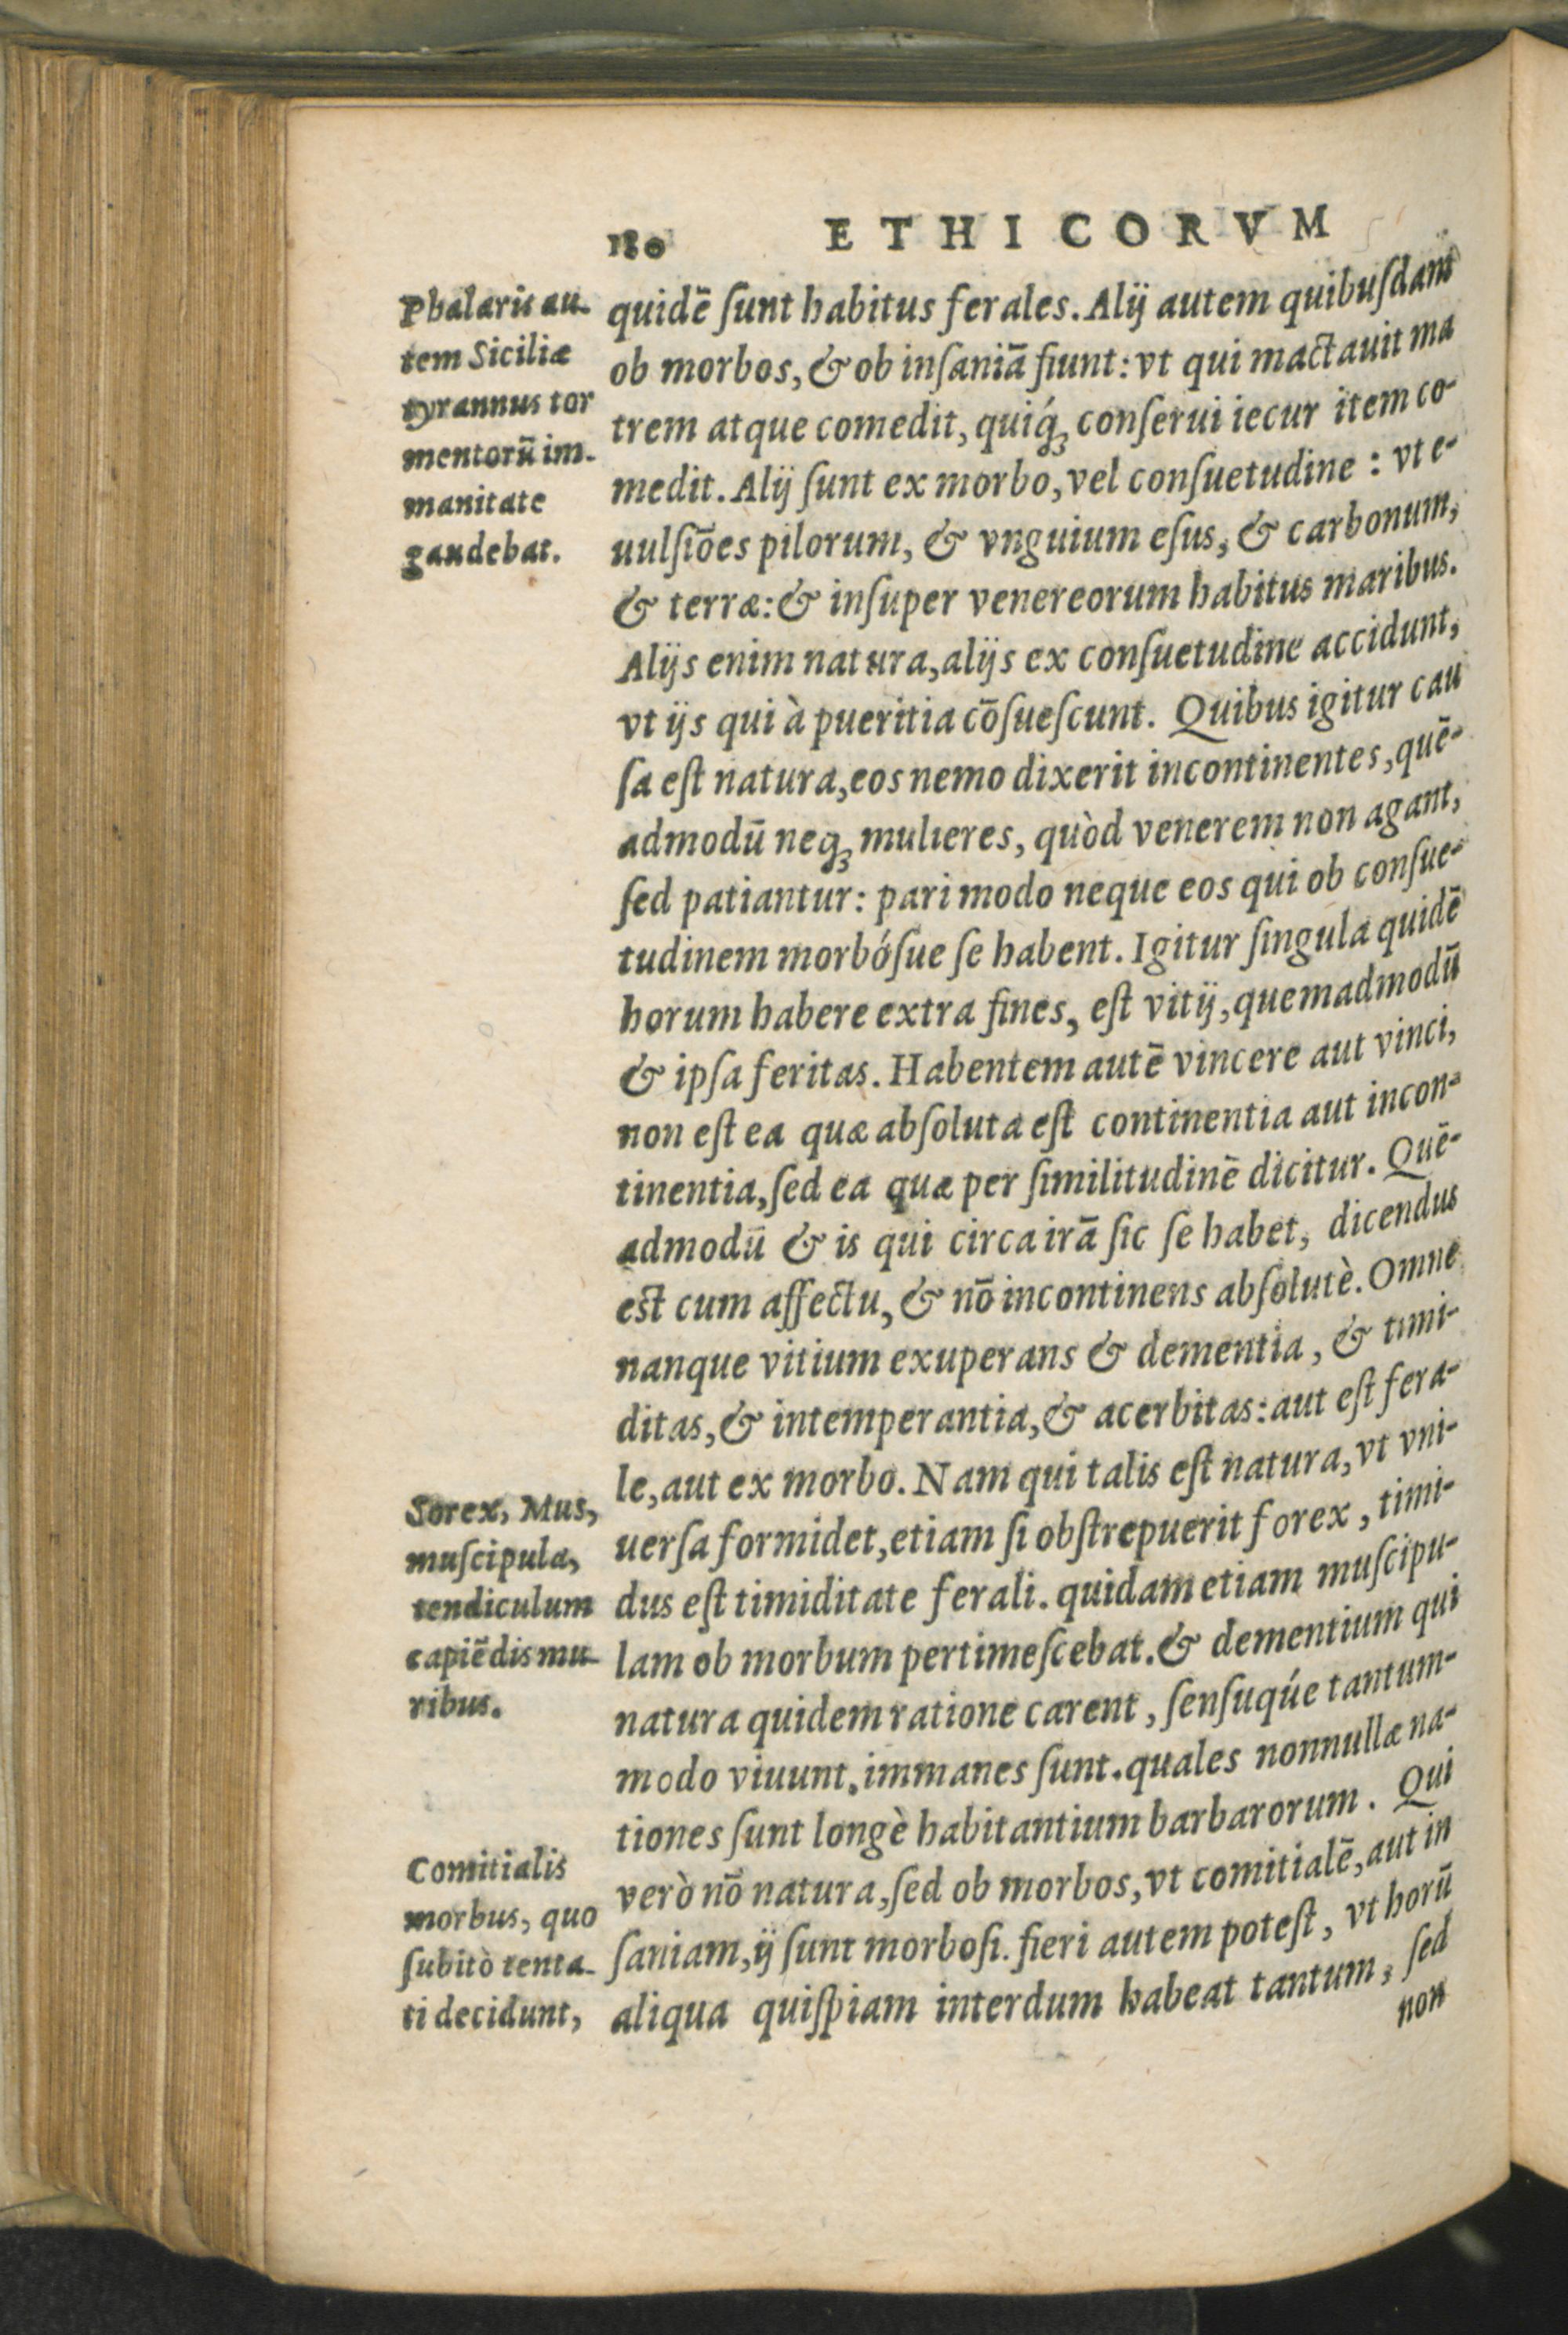 180 ETHICORVM
Phalaris au-
tem Siciliæ
tyrannus tor
mentorū im-
manitate
gaudebat.
quidē ſunt habitus ferales. Alij autem quibuſdam
ob morbos, & ob inſaniā fiunt: vt qui mactauit ma
trem atque comedit, quiq́ꝫ conſerui iecur item co-
medit. Alij ſunt ex morbo, vel conſuetudine : vt e-
uulſiōes pilorum, & vnguium eſus, & carbonum,
& terræ: & inſuper venereorum habitus maribus.
Alijs enim natura, alijs ex conſuetudine accidunt,
vt ijs qui à pueritia cōſueſcunt. Quibus igitur cau
ſa eſt natura, eos nemo dixerit incontinentes, quē-
admodū neqꝫ mulieres, quòd venerem non agant,
ſed patiantur: pari modo neque eos qui ob conſue-
tudinem morbóſue ſe habent. Igitur ſingula quidē
horum habere extra fines, eſt vitij, quemadmodū
& ipſa feritas. Habentem autē vincere aut vinci,
non eſt ea quæ abſoluta eſt continentia aut incon-
tinentia, ſed ea quæ per ſimilitudinē dicitur. Quē-
admodū & is qui circa irā ſic ſe habet, dicendus
eſt cum affectu, & nō incontinens abſolutè. Omne
nanque vitium exuperans & dementia, & timi-
ditas, & intemperantia, & acerbitas: aut eſt fera-
le, aut ex morbo. Nam qui talis eſt natura, vt vni-
uerſa formidet, etiam ſi obſtrepuerit ſorex, timi-
dus eſt timiditate ferali. quidam etiam muſcipu-
lam ob morbum pertimeſcebat. & dementium qui
natura quidem ratione carent, ſenſuqúe tantum-
modo viuunt, immanes ſunt. quales nonnullæ na-
tiones ſunt longè habitantium barbarorum. Qui
verò nō natura, ſed ob morbos, vt comitialē, aut in
ſaniam, ij ſunt morboſi. fieri autem poteſt, vt horū
aliqua quiſpiam interdum habeat tantum, ſed
non
Sorex, Mus,
muſcipula,
tendiculum
capiēdis mu-
ribus.
Comitialis
morbus, quo
ſubitò tenta-
ti decidunt,